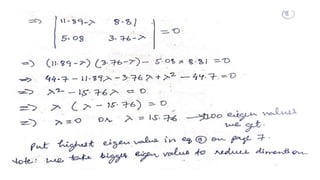 ⑧
=> | 11.89-λ 8.81 |
| 5.08 3.76-λ | = 0
=> (11.89-λ) (3.76-λ) - 5.08 x 8.81 = 0
=> 44.7 - 11.89λ - 3.76λ + λ² - 44.7 = 0
=> λ² - 15.76λ = 0
=> λ (λ - 15.76) = 0
=> λ = 0 OR λ = 15.76 → eigen values
we get.
Put highest eigen value in eq on page 7.
Note: we take bigger eigen value to reduce dimention.